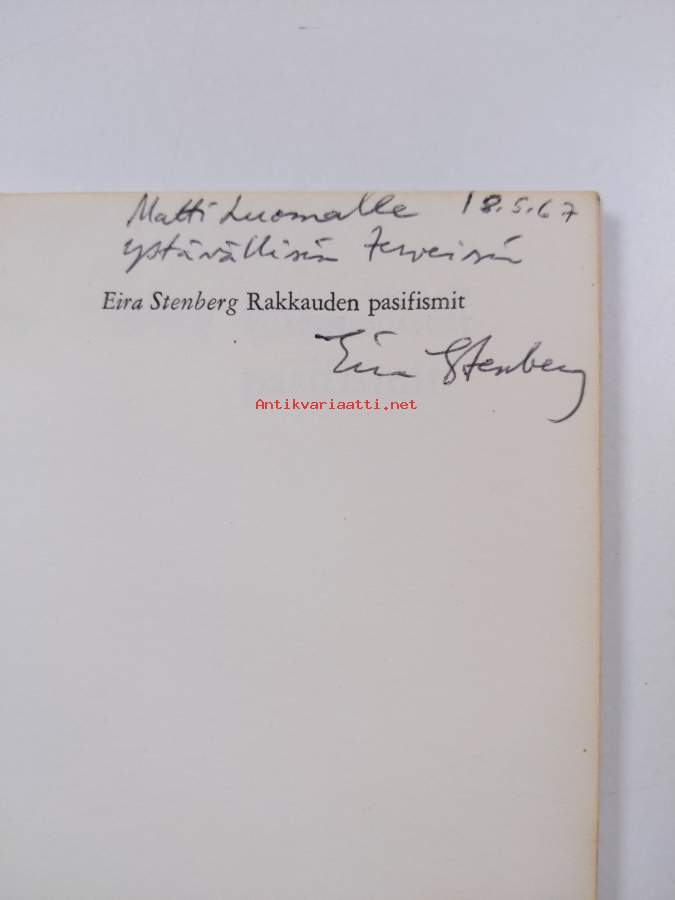 Matti Luomalle 18.5.67
ystävällisin terveisin
Eira Stenberg Rakkauden pasifismit
Eira Stenberg
Antikvariaatti.net